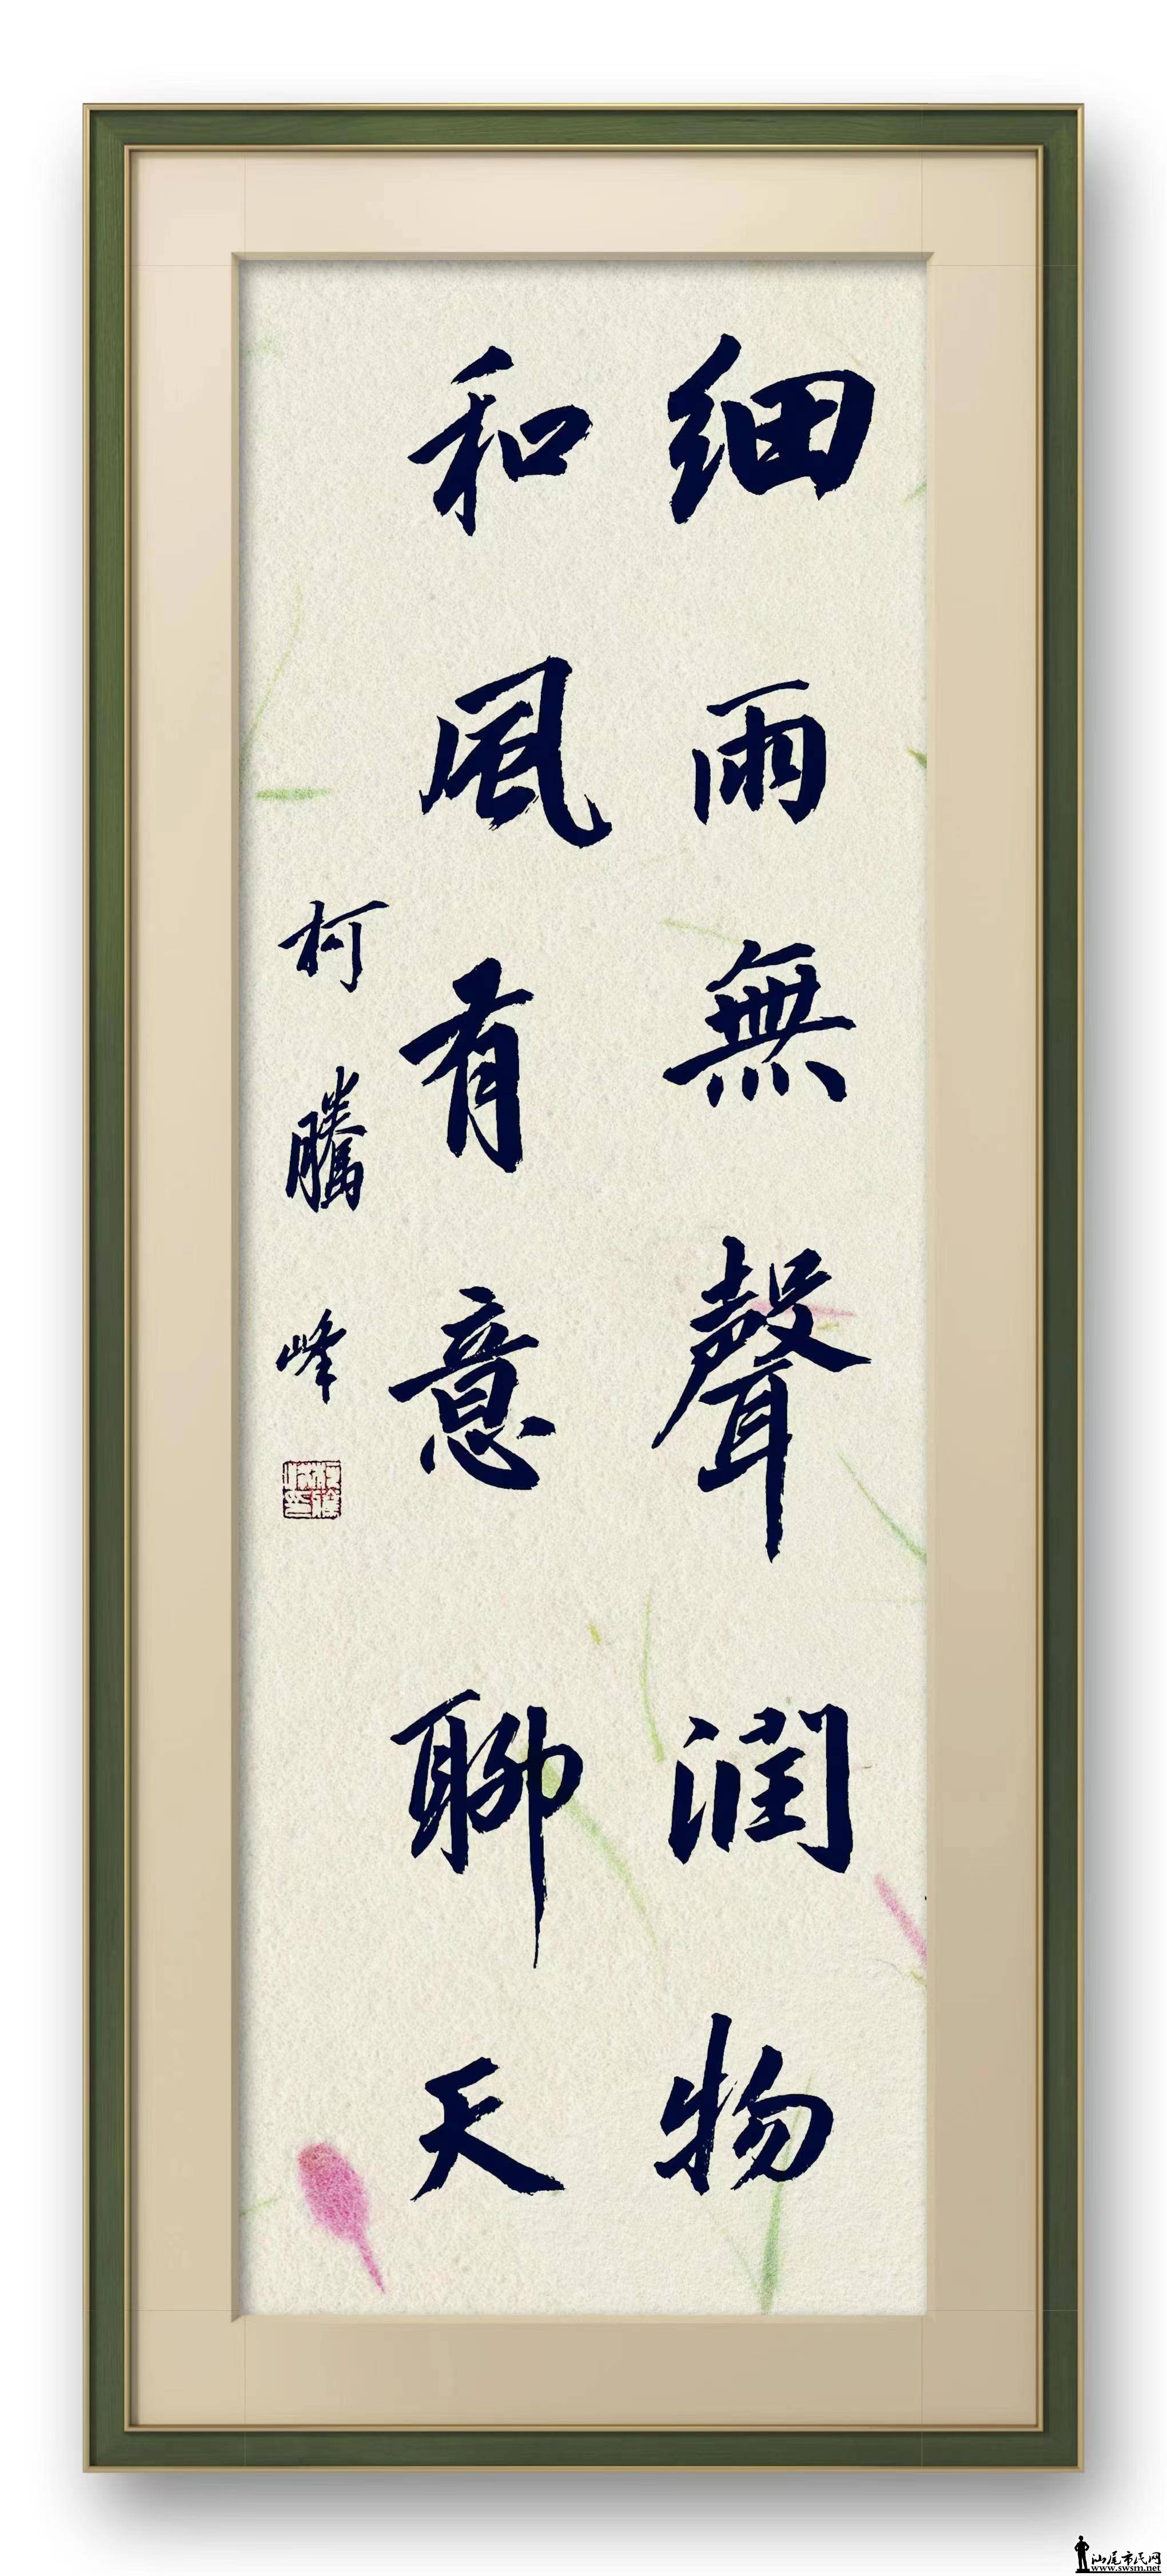 细雨無聲润物
和風有意聊天
柯騰峰
汕尾市民网
www.swsm.net